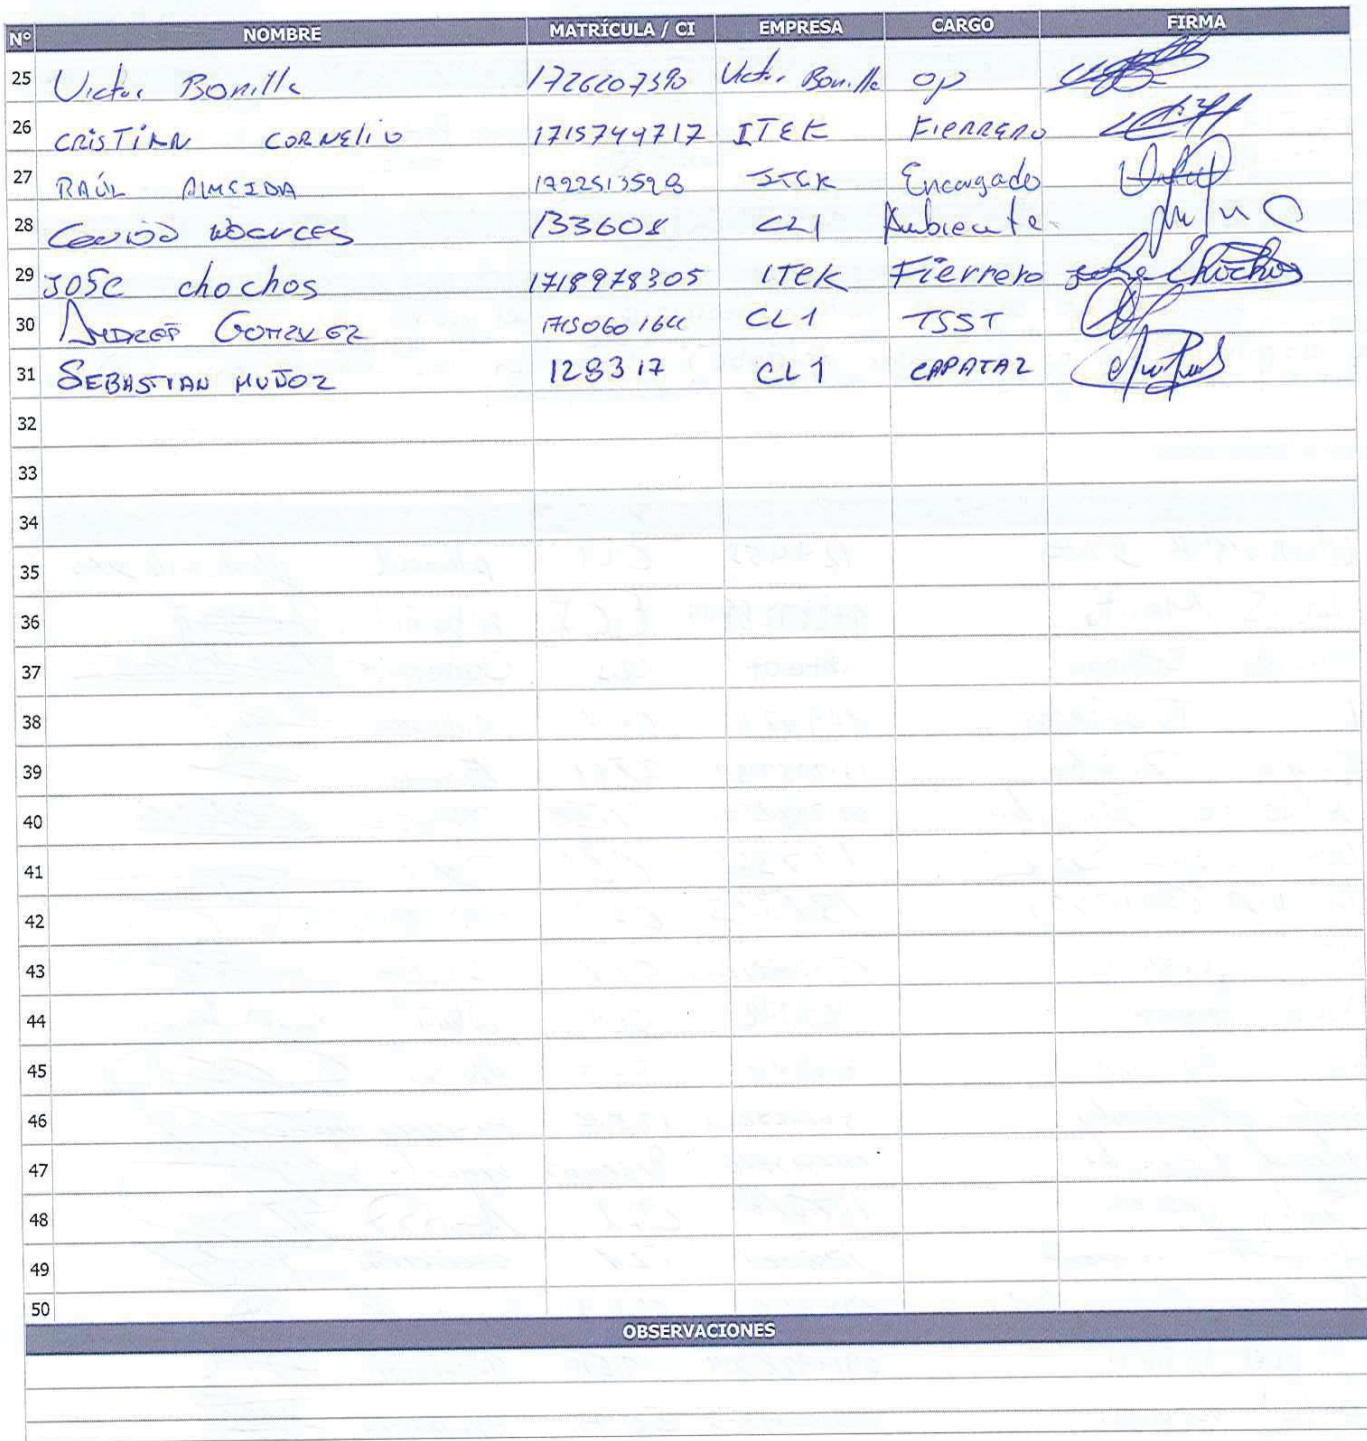 Nº NOMBRE MATRÍCULA / CI EMPRESA CARGO FIRMA
25 Victor Bonilla 1726207390 Victor Bonilla op
26 CRISTIAN CORNELIO 1715744717 ITEK FIERRERO
27 RAÚL ALMEIDA ITEK Encargado
28 133608 CL1 Ambiente
29 JOSE chochos 1718978305 ITEK Fierrero Jose Chochos
30 ANDRES GONZALEZ CL1 TSST
31 SEBASTIAN MUÑOZ 128317 CL1 CAPATAZ
32
33
34
35
36
37
38
39
40
41
42
43
44
45
46
47
48
49
50
OBSERVACIONES